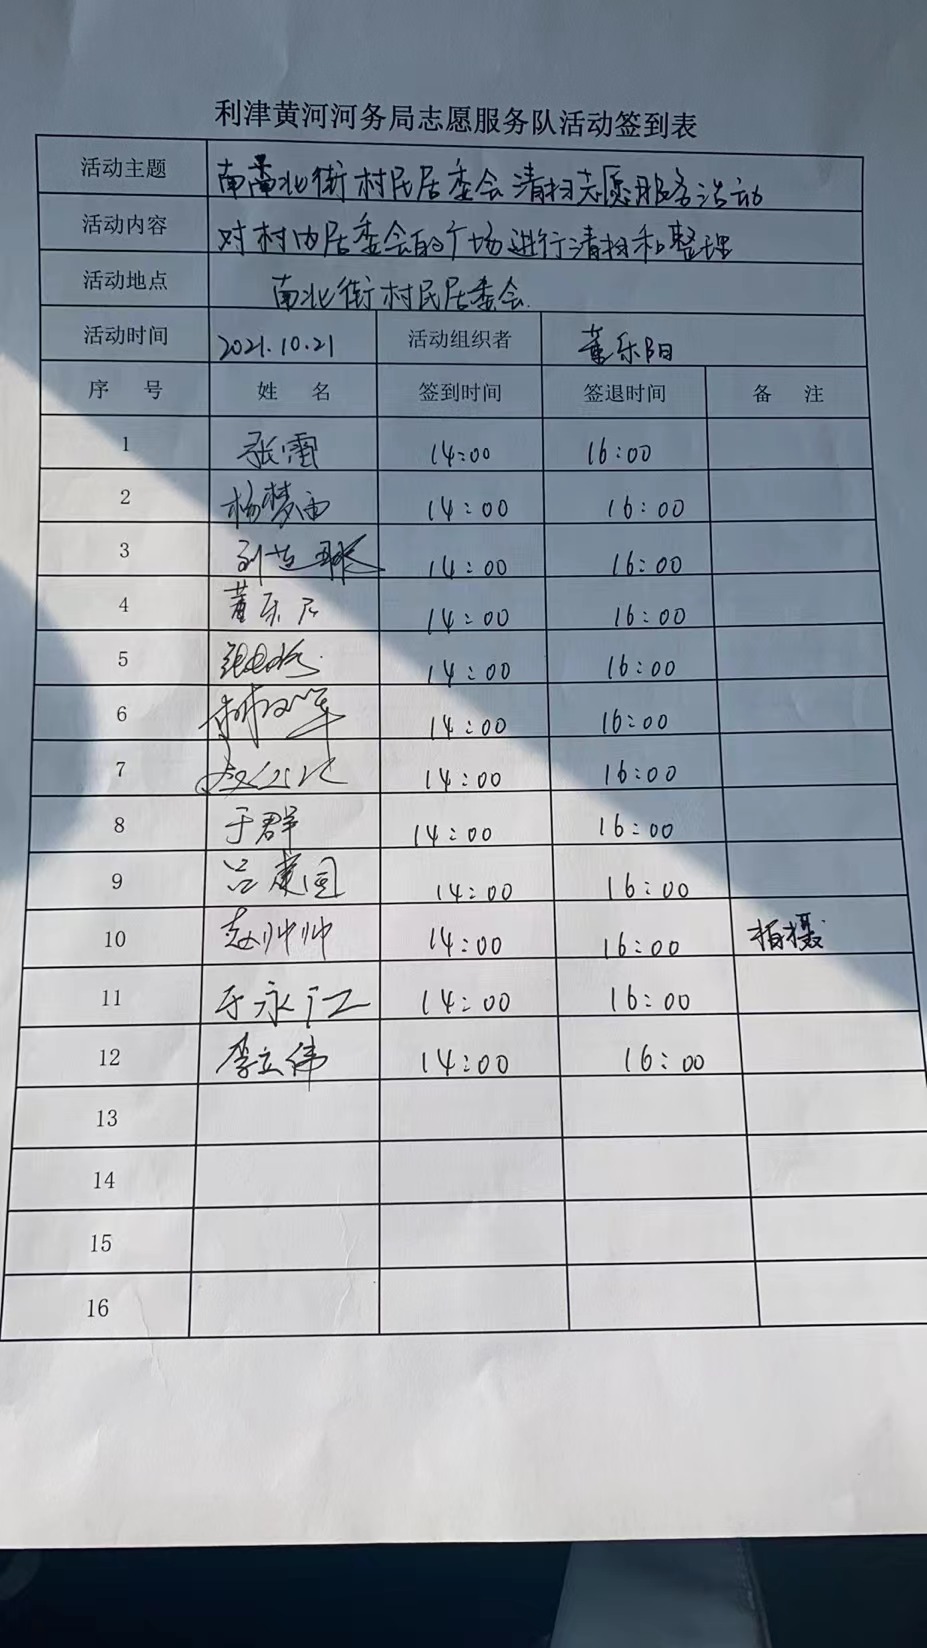 利津黄河河务局志愿服务队活动签到表
活动主题 南北街村民居委会清扫志愿服务活动
活动内容 对村内居委会的广场进行清扫和整理
活动地点 南北街村民居委会.
活动时间 2021.10.21 活动组织者 董乐阳
序 号 姓 名 签到时间 签退时间 备 注
1 张雷 14:00 16:00
2 杨梦雨 14:00 16:00
3 14:00 16:00
4 董乐阳 14:00 16:00
5 14:00 16:00
6 14:00 16:00
7 14:00 16:00
8 于群 14:00 16:00
9 吕建国 14:00 16:00
10 赵帅帅 14:00 16:00 拍摄
11 于永江 14:00 16:00
12 李立伟 14:00 16:00
13
14
15
16